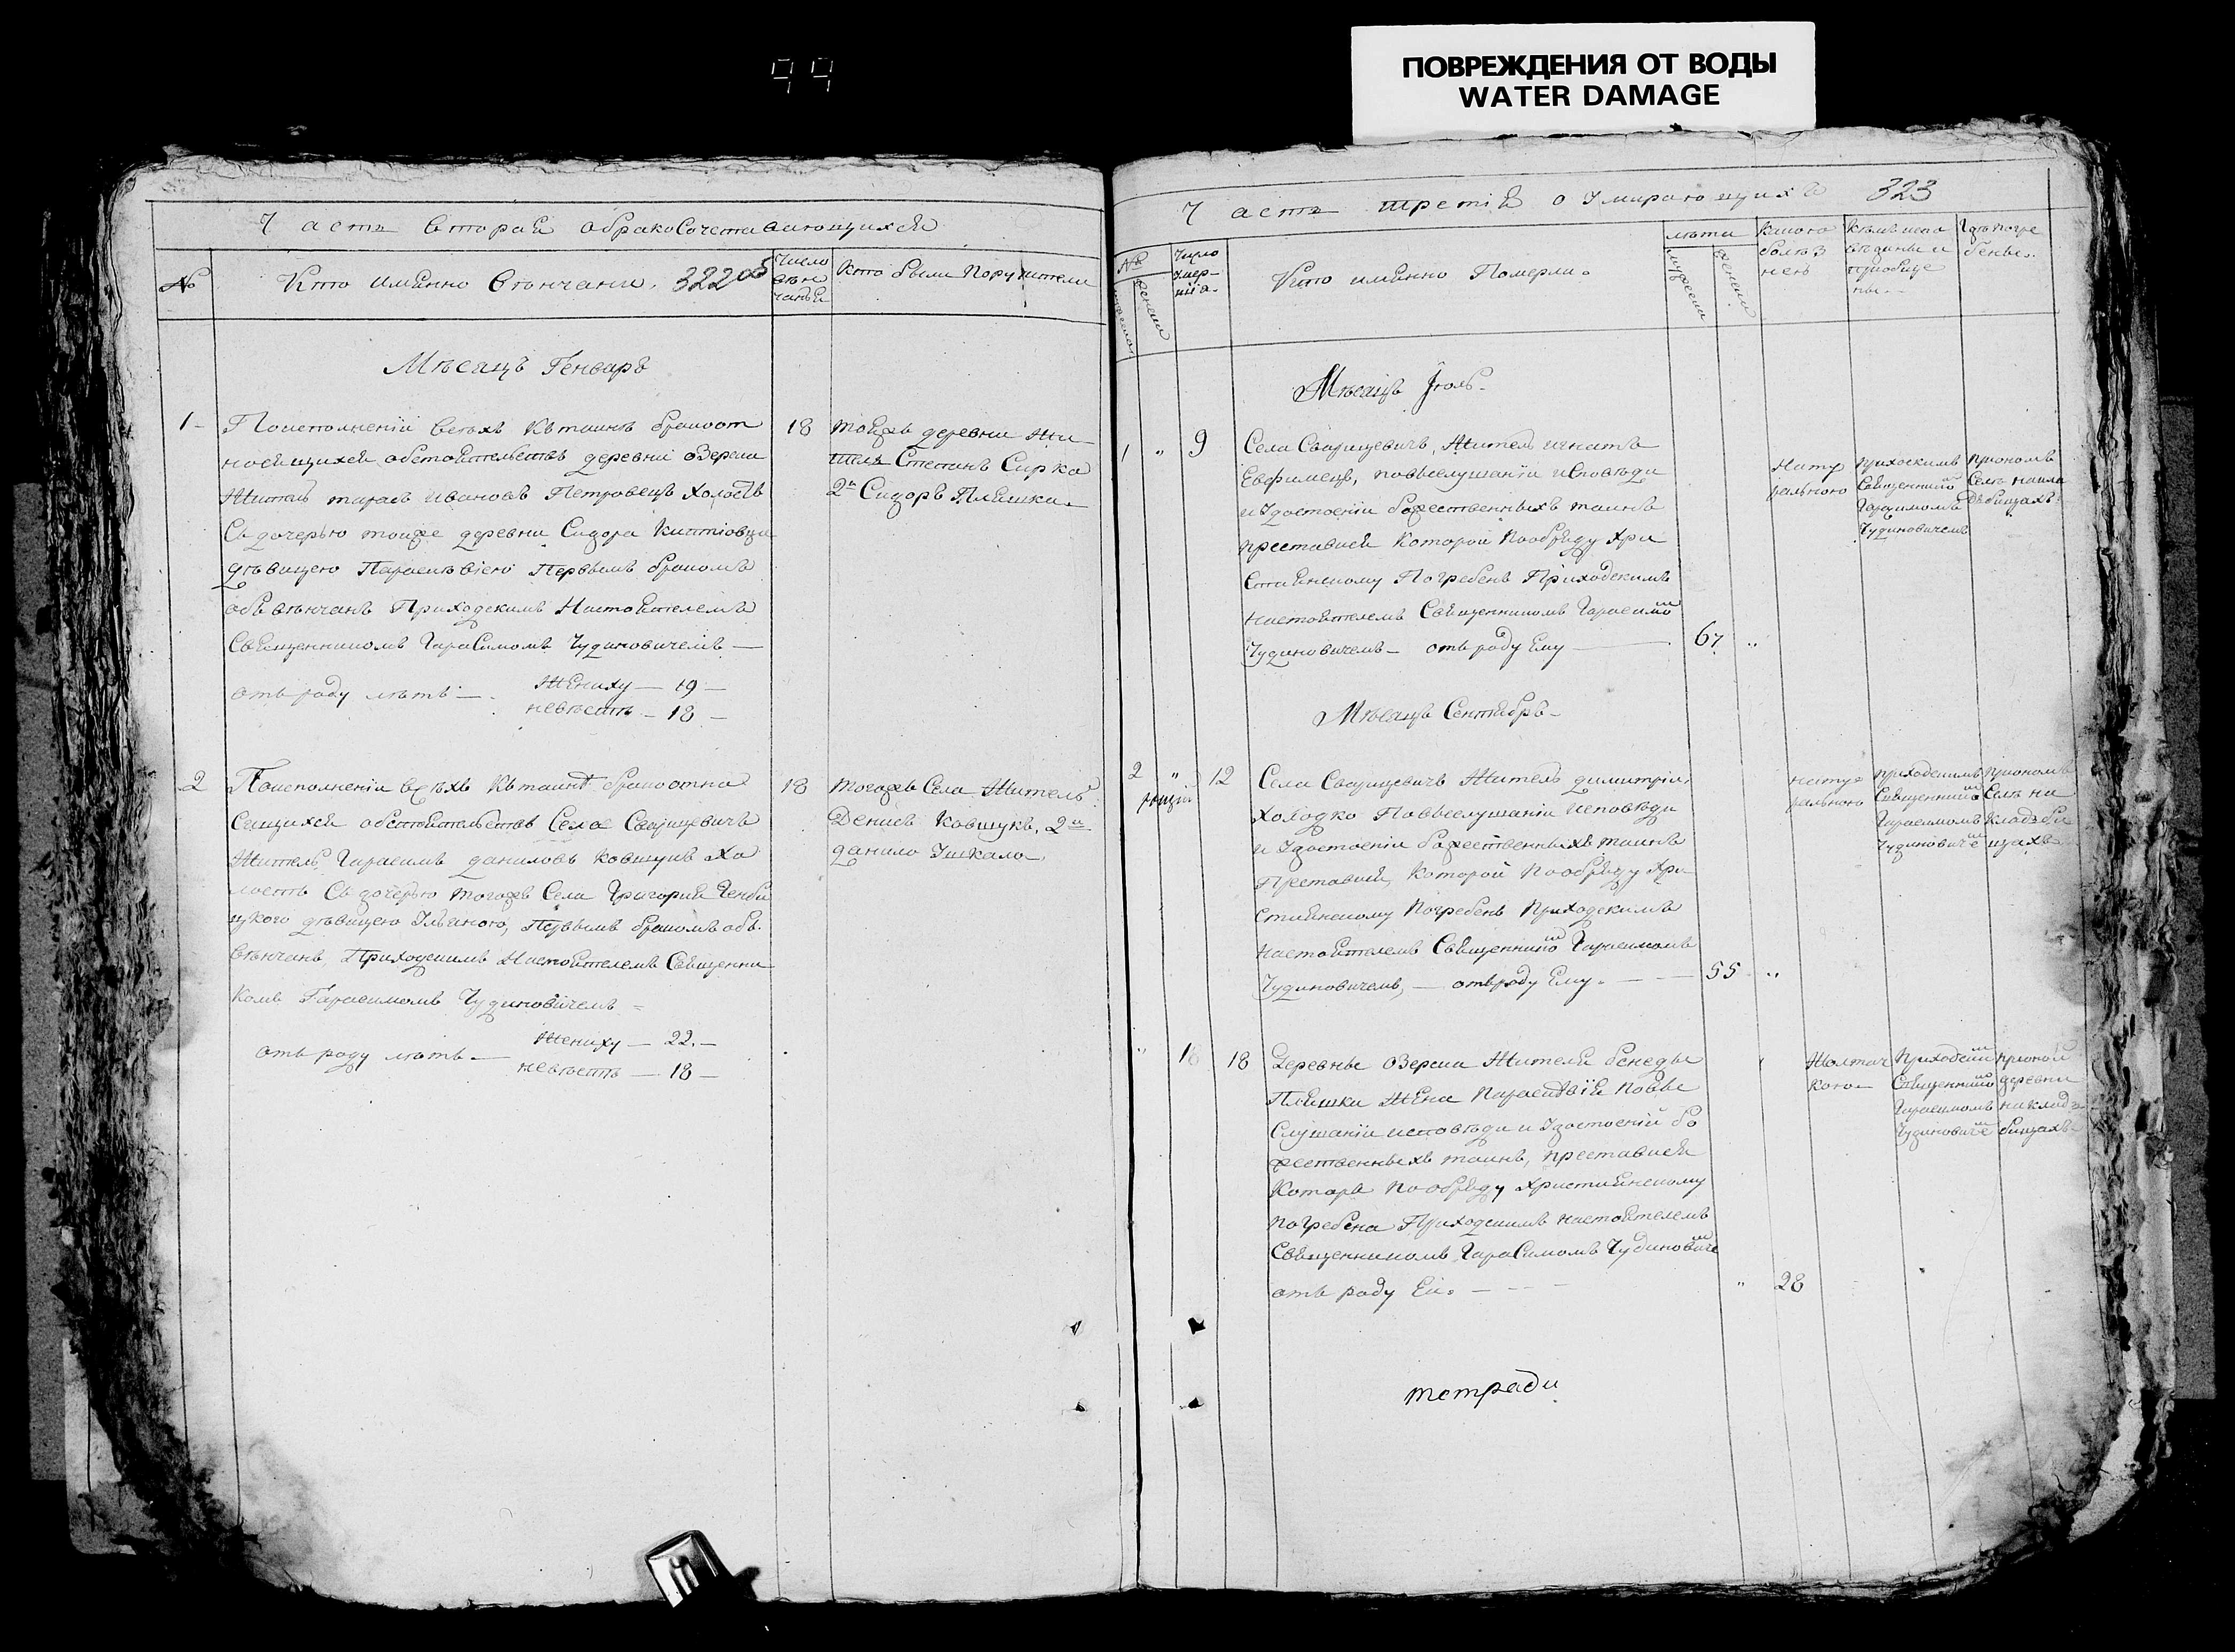 ПОВРЕЖДЕНИЯ ОТ ВОДЫ
WATER DAMAGE
99
Часть вторая обракосочетавающихся
№
Кто имянно венчани. 322 об
Число венчанья
Кто были Поручители
Мѣсяцъ Генваръ
1 -
По исполненіи всехъ къ таинѣ бракоот
носящихся обстоятельствъ деревни Озерска
Житель тарасъ Ивановъ Петровецъ холостъ
Съ дочерью тоижже деревни Сидора
дѣвицею Параскевіею Первымъ бракомъ
обвѣнчанъ Приходскимъ Настоятелемъ
Священникомъ Гарасимомъ Чудиновичемъ —
отъ роду лѣтъ — Жениху — 19 —
невѣстѣ — 18 —
18
тойжъ деревни Жи-
тель Степанъ Сирка
2й Сидоръ Пляшка.
2
По исполненіи всѣхъ къ таинѣ бракоотно
сящихся обстоятельствъ Села Сварицевичъ
Житель Гарасимъ даниловъ Ковшукъ Хо
лостъ Съ дочерью тогожъ Села Григорія
дѣвицею Ульяною, Первымъ бракомъ объ.
вѣнчанъ Приходскимъ Настоятелемъ Священни
комъ Гарасимомъ Чудиновичемъ =
отъ роду лѣтъ — Жениху — 22. —
невѣстѣ — 18 —
18
тогожъ Села Житель
Денисъ Ковшукъ, 2й
данило Ушкало.
Часть третія о Умирающихъ 323
№
Число умер-
шія.
Кто имянно Померли.
лѣта
мужеска
женски
Какою
болѣз
нею
Кѣмъ испо
вѣданы и
приобще
ны.
Где погре
бены.
Мѣсяцъ Іюль.
1 " 9
Села Сварицевичъ, Житель игнатъ
Евфимецъ, повыслушаніи исповѣди
и удостоеніи божественныхъ таинъ
преставися Которой Пообряду Хри
стиянскому Погребенъ Приходскимъ
настоятелемъ Священникомъ Гарасимо
Чудиновичемъ — отъ роду Ему — 67 "
Нату
рального
приходскимъ
Священнико
Гарасимомъ
Чудиновичемъ
Мѣсяцъ Сентябръ —
2 " 12
Села Сварицевичъ Житель димитрій
Холодко Повыслушаніи исповѣди
и Удостоеніи божественныхъ таинъ
Преставися, Которой Пообряду Хри
стиянскому Погребенъ Приходскимъ
настоятелемъ Священнико Гарасимомъ
Чудиновичемъ, — отъ роду Ему. — 55 "
нату-
рального
приходскимъ
Священнико
Гарасимомъ
Чудиновиче
" 1 18
Деревны Озерска Жителя бенеды
Пляшки Жена Параскевія Повы
слушаніи исповѣди и Удостоеній бо
жественныхъ таинъ, преставися
Котора Пообряду Християнскому
погребена Приходскимъ настоятелемъ
Священникомъ Гарасимомъ Чудиновиче
отъ роду Ей. — " 28
приходски
Священнико
Гарасимомъ
Чудиновиче
деревни
на кладъ-
бищахъ
тетради